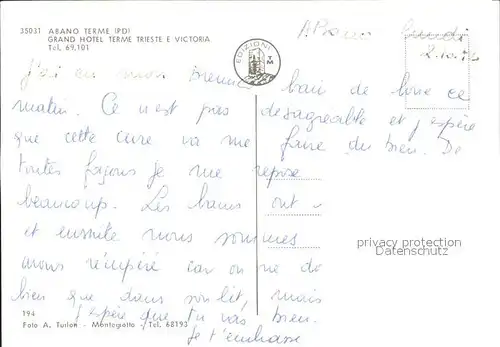 35031 ABANO TERME (PD)
GRAND HOTEL TERME TRIESTE E VICTORIA
Tel. 69.101
EDIZIONI TM
Abano lundi
2.10.
J'ai eu mon premier bain de boue ce
matin. Ce n'est pas désagréable et j'espère
que cette cure va me faire du bien. De
toutes façons je me repose
beaucoup. Les bains ont
et ensuite nous sommes
car on ne
bien que dans son lit, mais
j'espère que tu vas bien.
Je t'embrasse
privacy protection
Datenschutz
194
Foto A. Turlon - Montegrotto - Tel. 68193